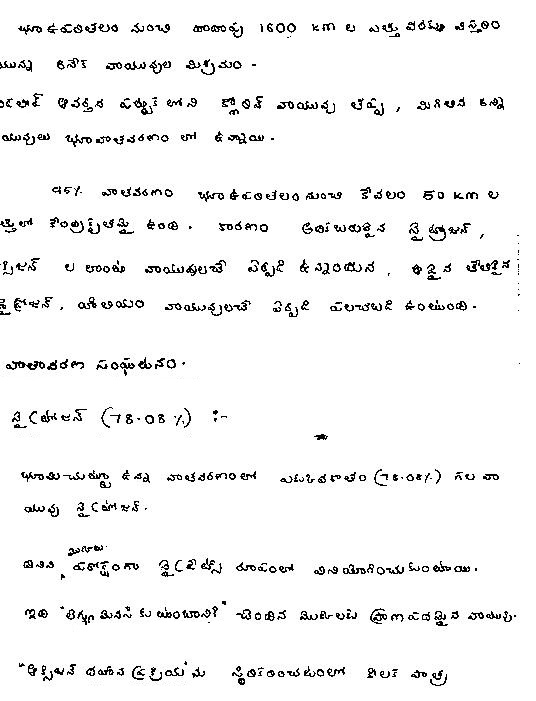 భూ ఉపరితలం నుంచి దాదాపు 1600 km ల ఎత్తు వరకూ విస్తరిం
యున్న అనేక వాయువుల మిశ్రమం.
ఆవర్తన పట్టిక లోని క్లోరిన్ వాయువు తప్ప, మిగిలిన అన్ని
యువులు భూవాతావరణం లో ఉన్నాయి.
95% వాతవరణం భూఉపరితలం నుంచి కేవలం 50 km ల
త్తులో కేంద్రీకృతమై ఉంది. కారణం బరువైన నైట్రోజన్,
క్సిజన్ ల లాంటి వాయువులచే ఏర్పడి ఉన్నందున, పైన తేలికైన
హైడ్రోజన్, హీలియం వాయువులచే ఏర్పడి పలుచబడి ఉంటుంది.
వాతావరణ సంఘటనం.
నైట్రోజన్ (78.08%) :-
భూమి చుట్టూ ఉన్న వాతవరణంలో ఎక్కువశాతం (78.08%) గల వా
యువు నైట్రోజన్.
మొక్కలు
దీనిని పరోక్షంగా నైట్రేట్స్ రూపంలో వినియోగించుకుంటాయి.
ఇది "లెగ్యుమినేసి కుటుంబానికి" చెందిన మొక్కలకు ప్రాణప్రదమైన వాయువు.
"ఆక్సిజన్ దహన ప్రక్రియ"ను స్థిరీకరించడంలో కీలక పాత్ర